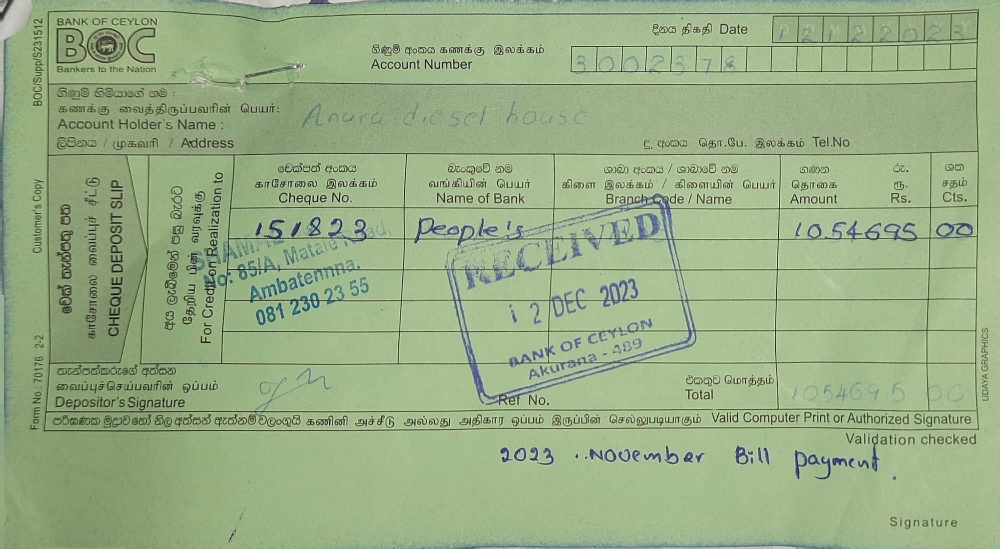 BANK OF CEYLON
BOC
Bankers to the Nation
BOC/Supp/S231512
දිනය திகதி Date 12122023
ගිණුම් අංකය கணக்கு இலக்கம்
Account Number 3002378
ගිණුම් හිමියාගේ නම :
கணக்கு வைத்திருப்பவரின் பெயர்:
Account Holder's Name : Anura diesel house
ලිපිනය / முகவரி / Address
දු. අංකය தொ.பே. இலக்கம் Tel.No
Customer's Copy
Form No : 70176 2-2
චෙක් තැන්පතු පත
காசோலை வைப்புச் சீட்டு
CHEQUE DEPOSIT SLIP
අය ලැබීමෙන් පසු බැරට
தேறிய பின் வரவுக்கு
For Credit on Realization to
චෙක්පත් අංකය
காசோலை இலக்கம்
Cheque No.
බැංකුවේ නම
வங்கியின் பெயர்
Name of Bank
ශාඛා අංකය / ශාඛාවේ නම
கிளை இலக்கம் / கிளையின் பெயர்
Branch Code / Name
ගණන රු.
தொகை ரூ.
Amount Rs.
ශත
சதம்
Cts.
151823 People's 1054695 00
No: 85/A, Matale Road,
Ambatennna.
081 230 23 55
RECEIVED
12 DEC 2023
BANK OF CEYLON
Akurana - 489
තැන්පත්කරුගේ අත්සන
வைப்புச்செய்பவரின் ஒப்பம்
Depositor'sSignature
Ref No.
එකතුව மொத்தம்
Total 1054695 00
පරිගණක මුද්‍රාව හෝ නිල අත්සන් ඇත්නම් වලංගුයි கணினி அச்சீடு அல்லது அதிகார ஒப்பம் இருப்பின் செல்லுபடியாகும் Valid Computer Print or Authorized Signature
UDAYA GRAPHICS
Validation checked
2023 . . November Bill payment.
Signature